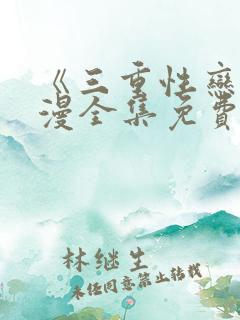 《三重性恋
漫全集免费
林继生
未经同意禁止转载